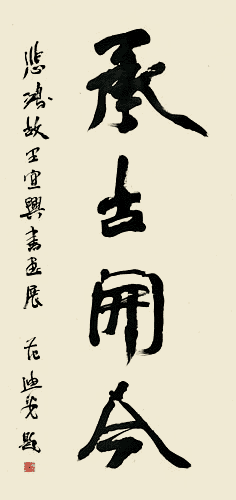 承古開今
悲鴻故里宜興書畫展 范迪安題